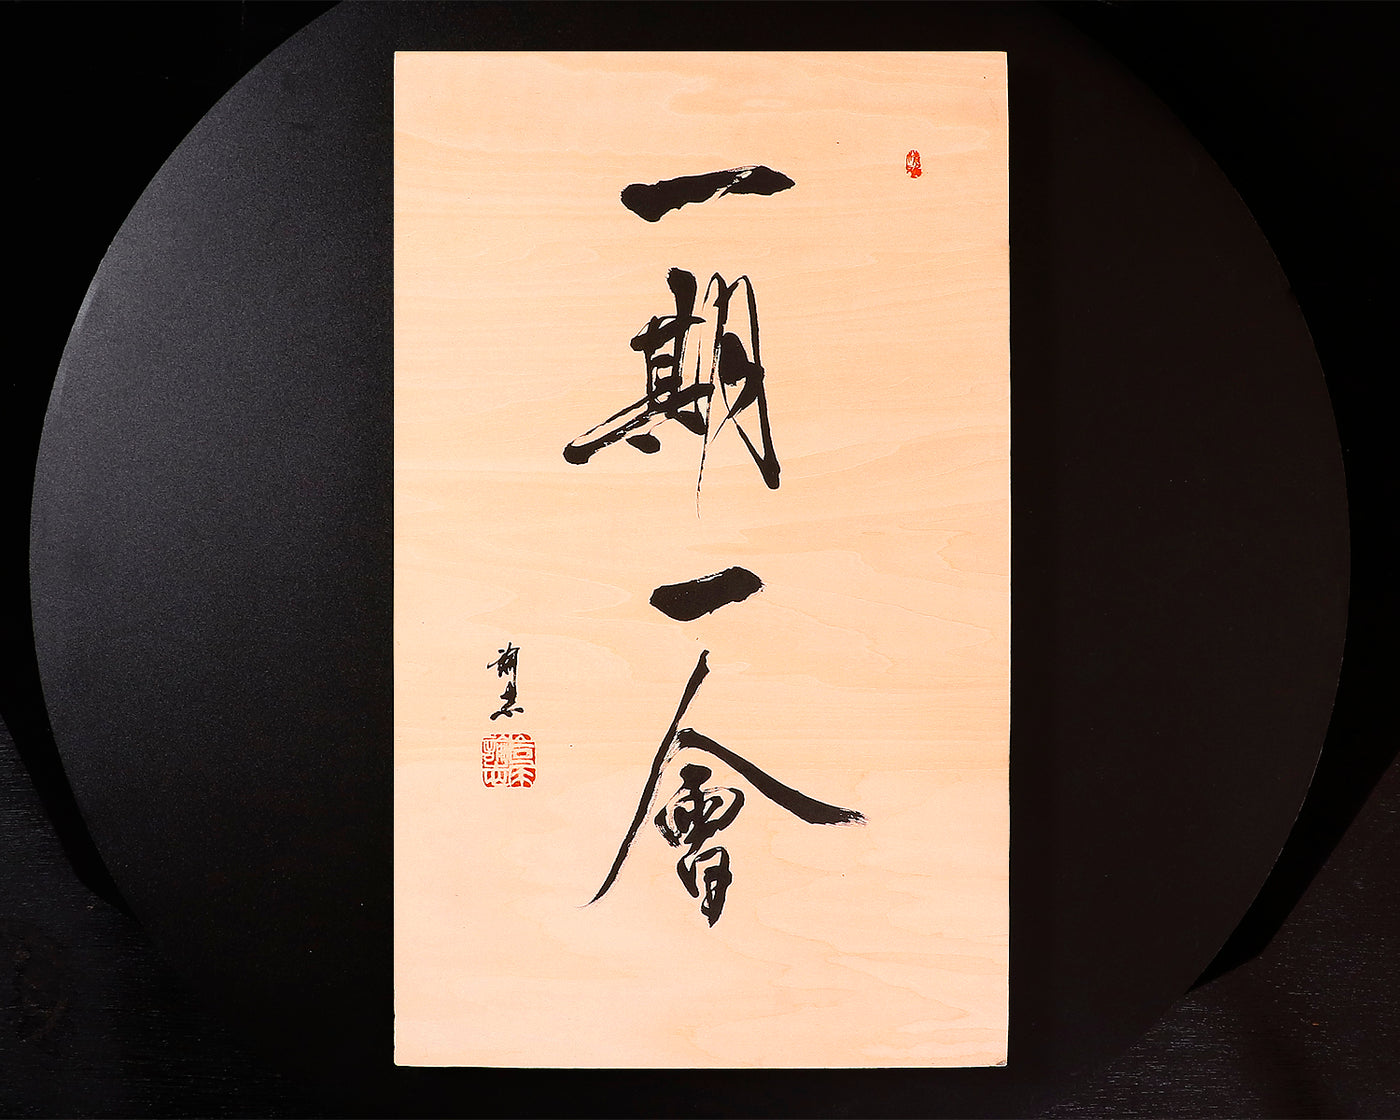 一期一會